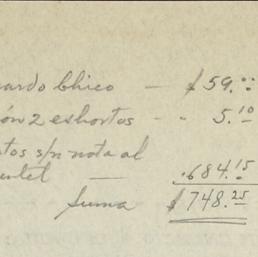 uardo Chico — $59.00
ón 2 eshortos - " 5.10
tos s/n nota al
— .684.15
Suma $748.25